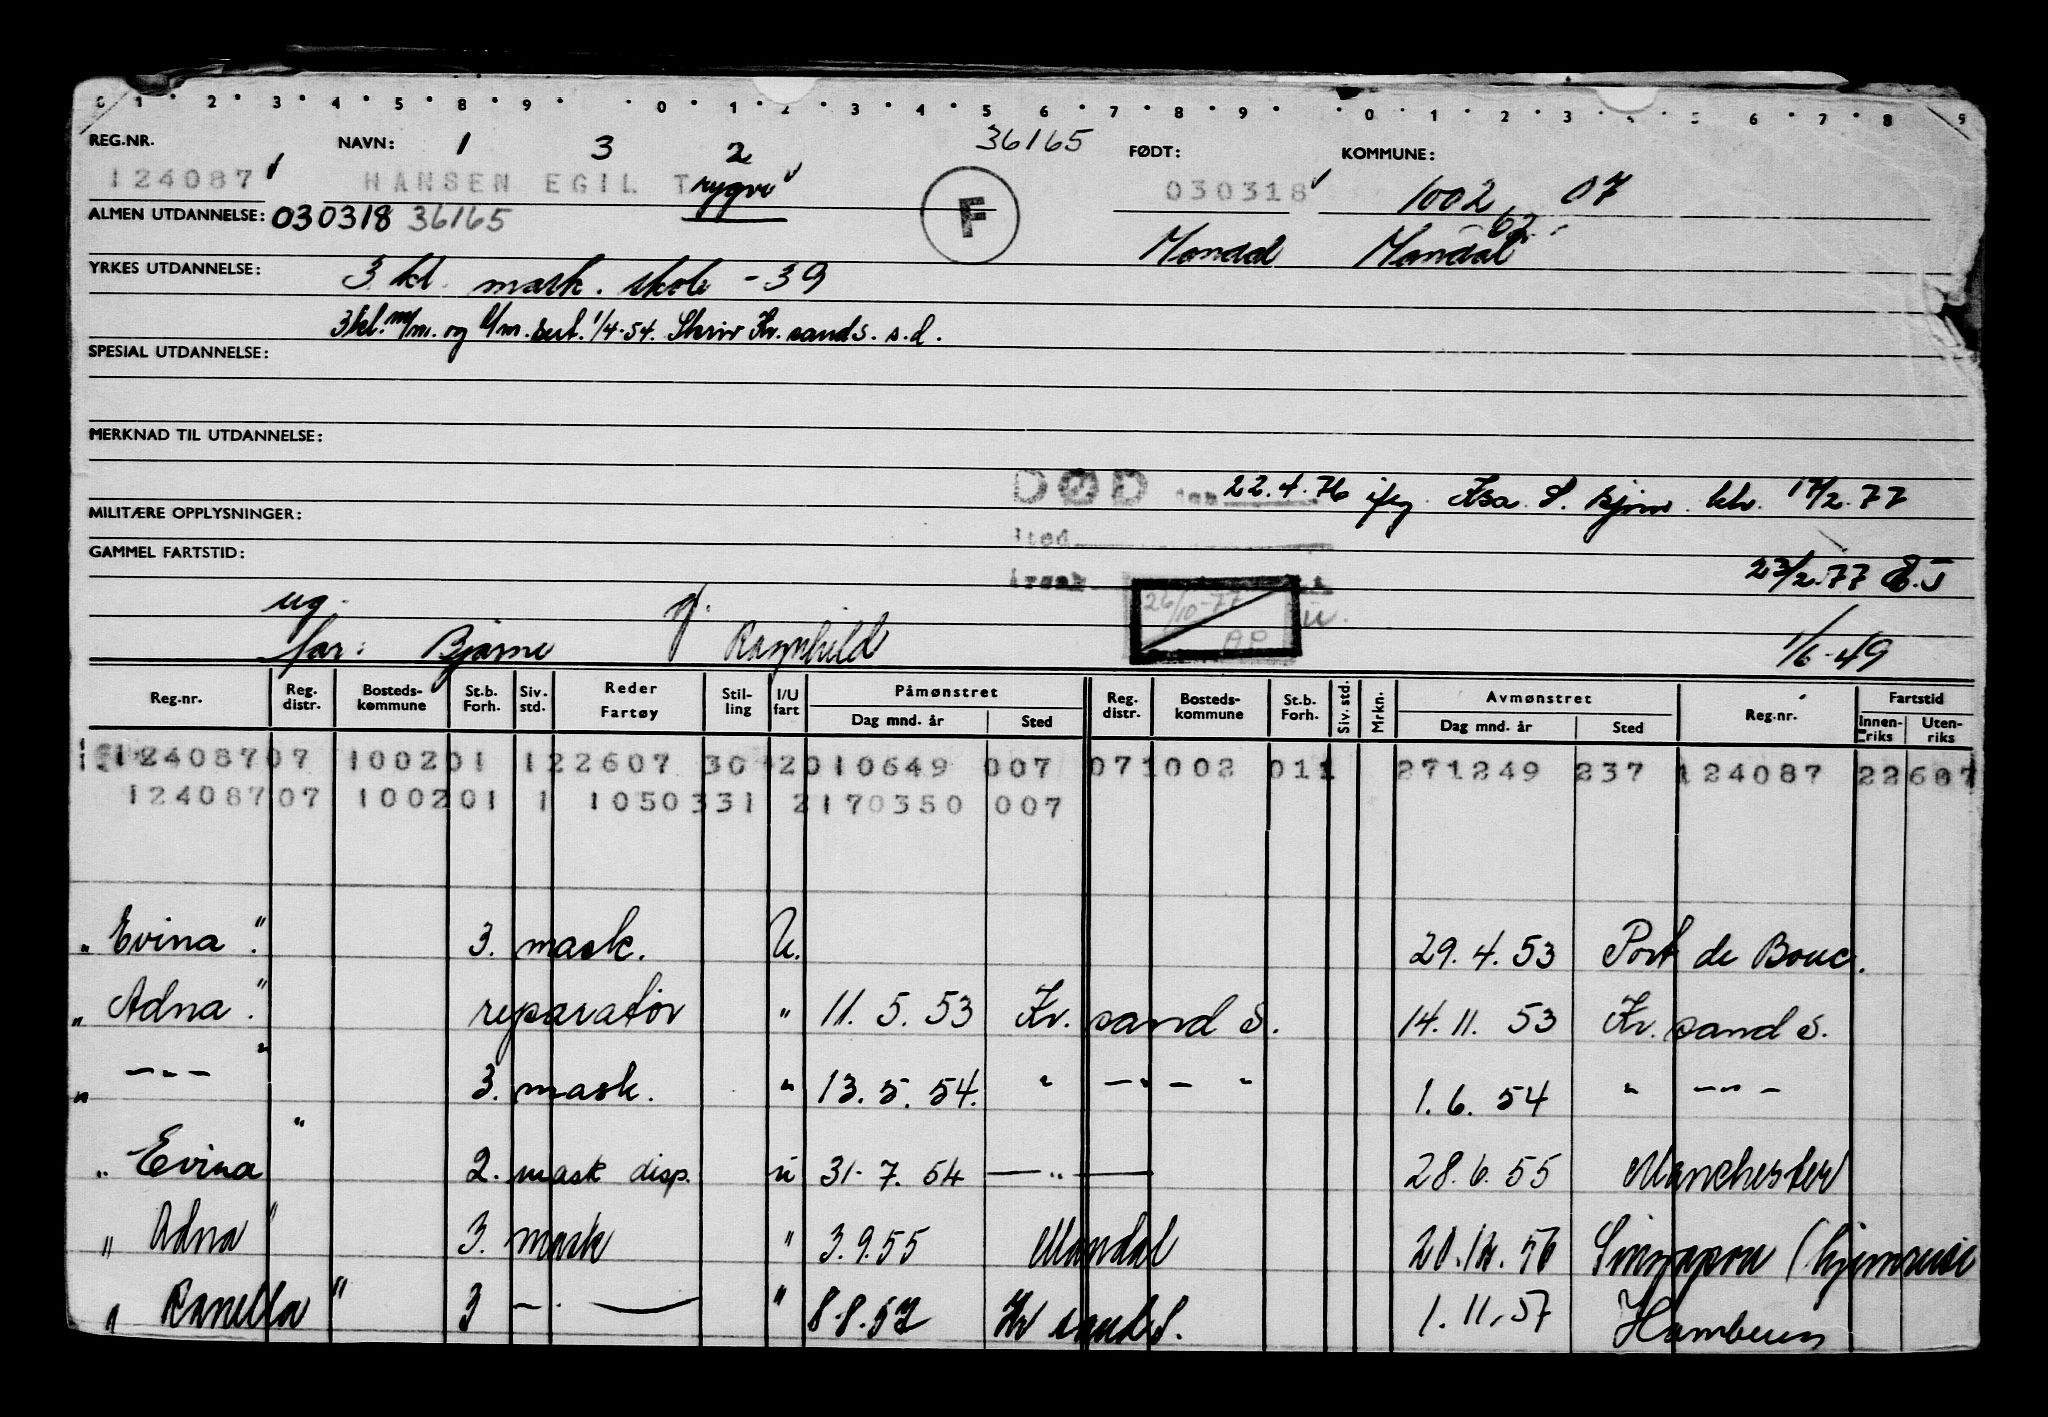 0 1 2 3 4 5 8 9 0 1 2 3 4 5 6 7 8 9 0 1 2 3 6 7 8 9
REG.NR. NAVN: 1 3 2 36165 FØDT: KOMMUNE:
124087 HANSEN EGIL Trygve F 030318 1002 07
ALMEN UTDANNELSE: 030318 36165 Mandal Mandal 62
YRKES UTDANNELSE: 3 kl. mask. skole - 39
3kl. m/m. og sert. 1/4-54. Skriv Kr.sand S. s.d.
SPESIAL UTDANNELSE:
MERKNAD TIL UTDANNELSE:
DØD den 22.4.76 ifg. S. ktr. 17/2.77
MILITÆRE OPPLYSNINGER: Sted
GAMMEL FARTSTID: 23/2.77 E.J
Årsak
ug. g. 26/10-77 u.
far: Bjarne Ragnhild 1/6-49
Reg.nr. Reg. distr. Bosteds- kommune St.b. Forh. Siv. std. Reder Fartøy Stil- ling I/U fart Påmønstret Dag mnd. år Sted Reg. distr. Bosteds- kommune St.b. Forh. Siv. std. Mrkn. Avmønstret Dag mnd. år Sted Reg.nr. Fartstid Innen- riks Uten- riks
124087 07 1002 01 1 22607 30 2 010649 007 07 1002 01 1 271249 237 124087 22607
124087 07 1002 01 1 10503 31 2 170350 007
" Evina ". 3. mask. U. 29.4.53 Port de Bouc.
" Adna ". reparatør " 11.5.53 Kr. sand S. 14.11.53 Kr. sand S.
" — " — " 3. mask. " 13.5.54. " — " — " 1.6.54 " — " —
" Evina " 2. mask disp. u 31.7.54 — " — 28.6.55 Manchester
" Adna " 3. mask " 3.9.55 Mandal 56 Singapore (hjemreise
" Ranella " 3 — " — " 8.8.57 Kr sand S. 1.11.57 Hamburg